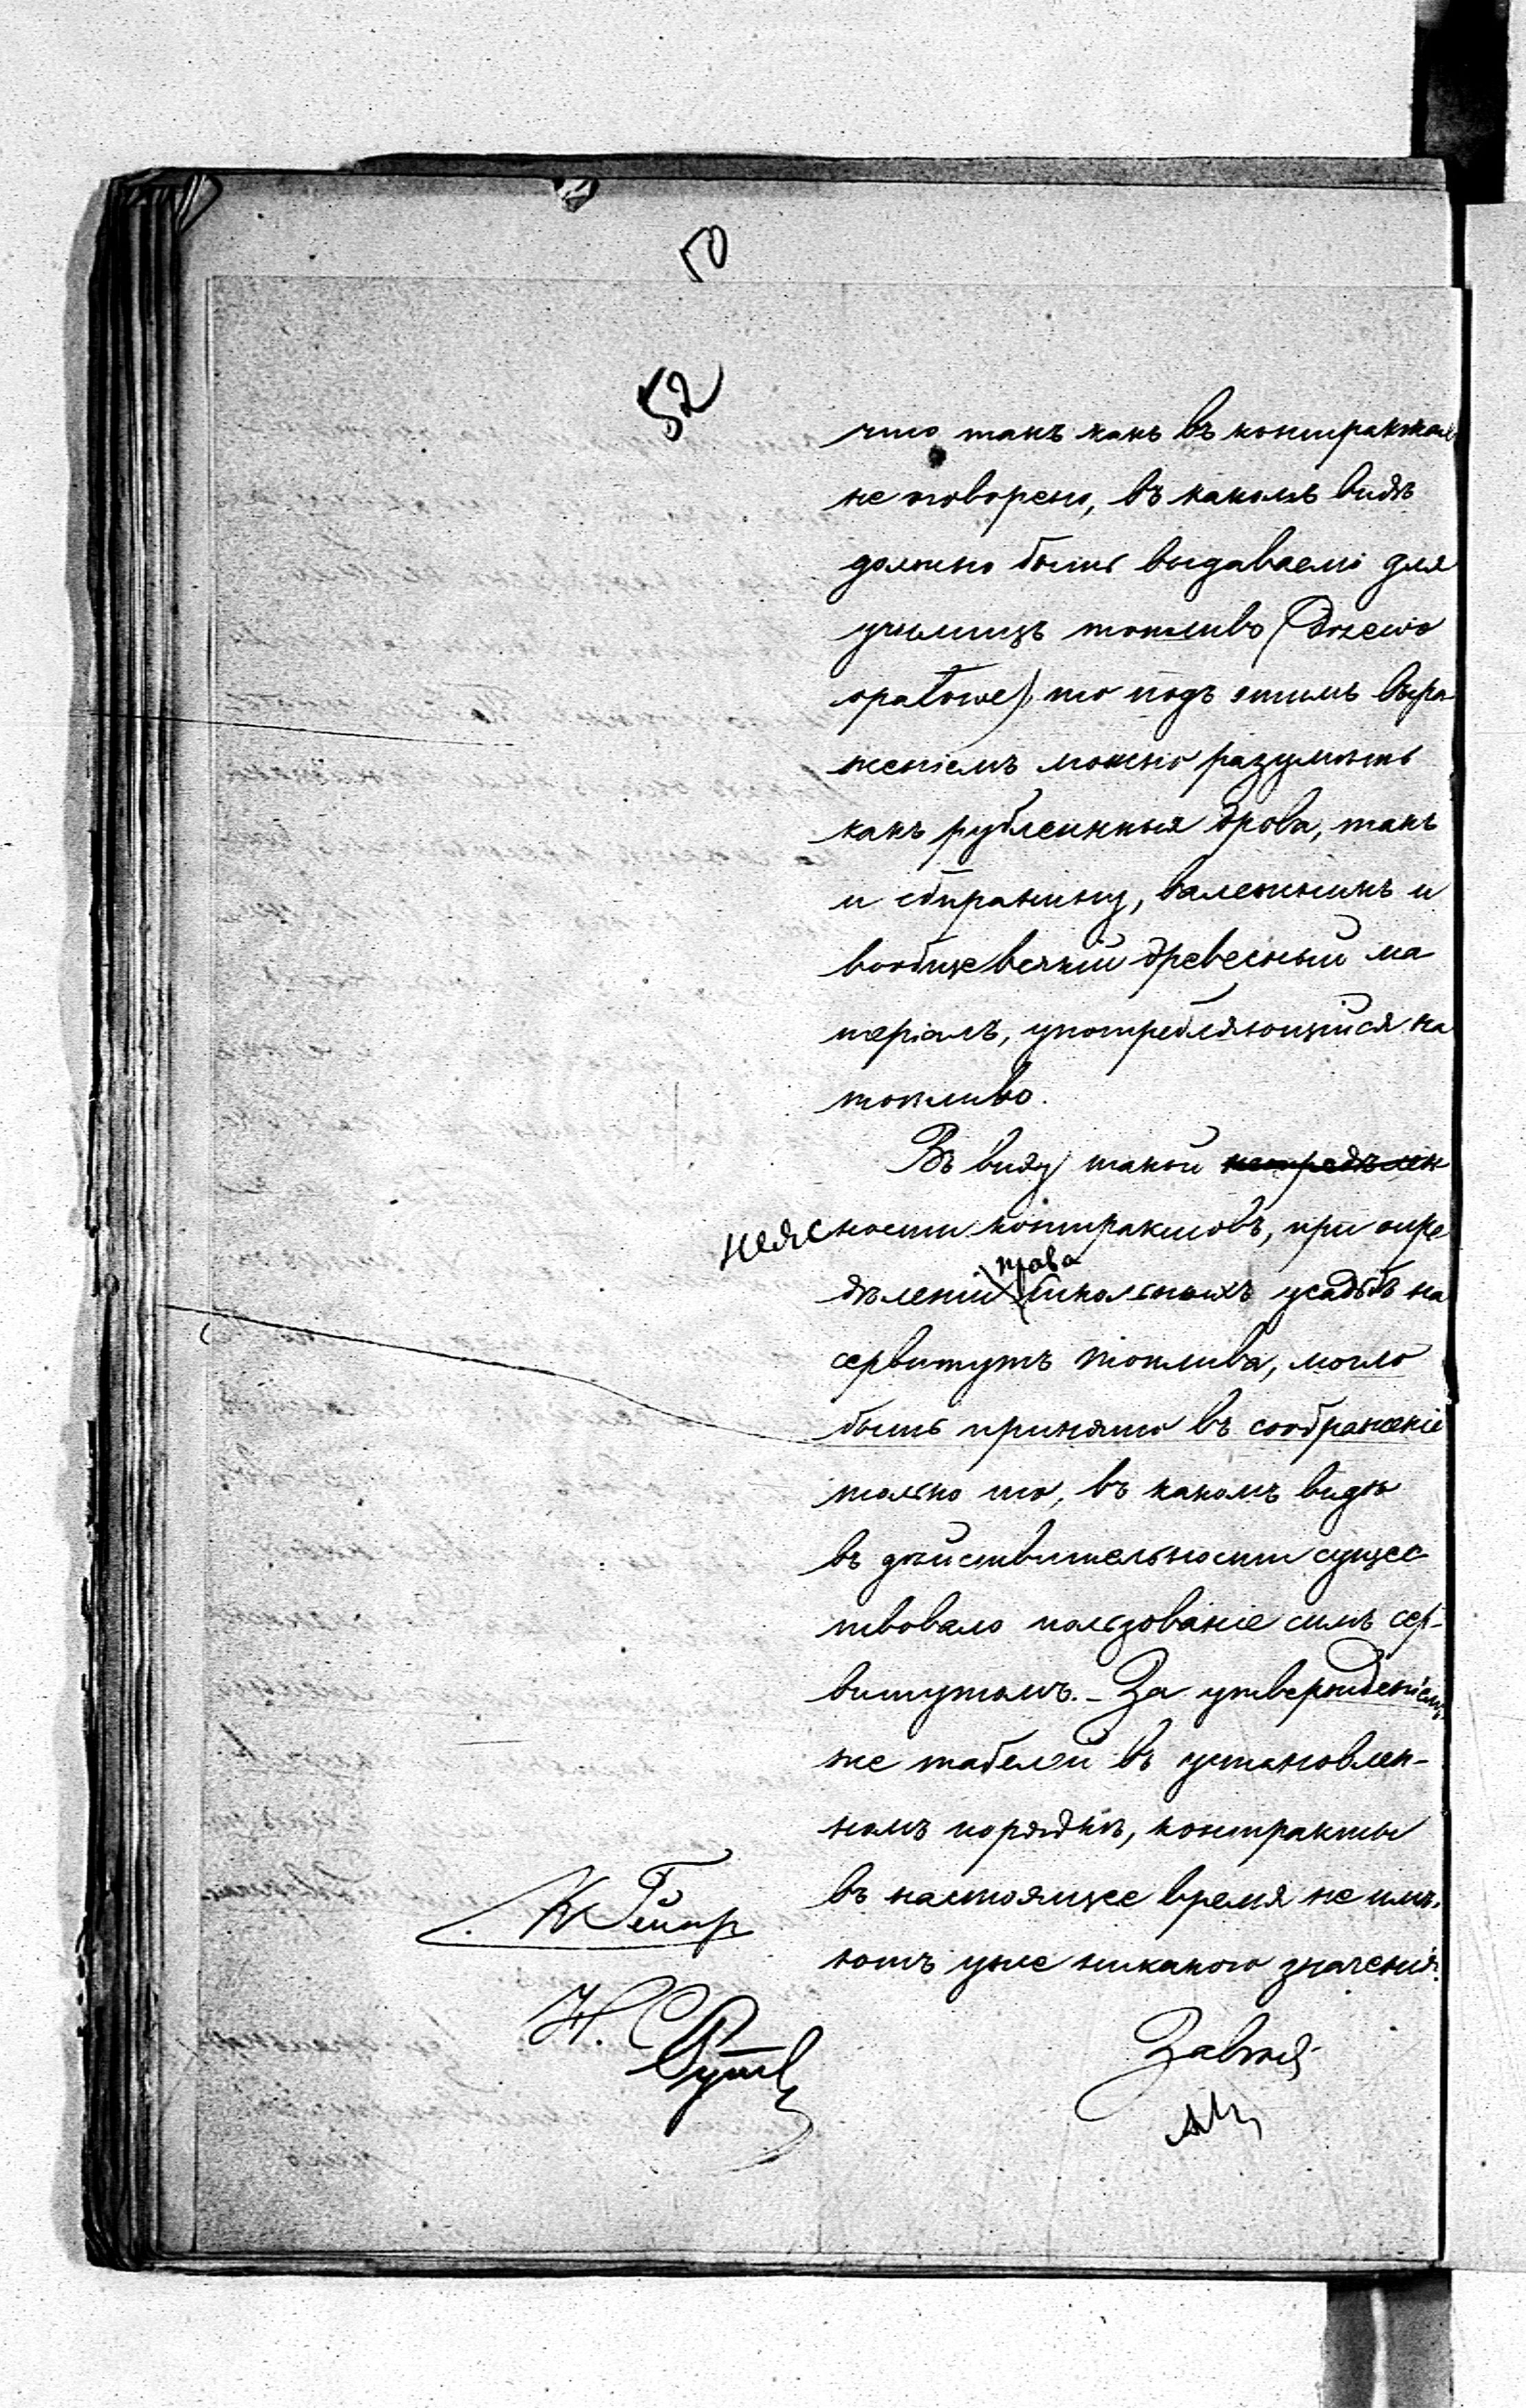 50
52
что такъ какъ въ контрактах
не оговорено, въ какомъ видѣ
должно быть выдаваемо для
училищъ топливо (drzewo
opałowe), то подъ этимъ выра
женіемъ можно разумѣть
какъ рубленныя дрова, такъ
и сбиранину, валежникъ и
вообще всякій древесный ма
теріалъ, употребляющійся на
топливо.
Въ виду такой неопредѣлен
неясности контрактовъ, при опре
права
дѣленіи школьныхъ усадьбъ на
сервитутъ топлива, могло
быть принято въ соображеніе
только то, въ какомъ видѣ
въ дѣйствительности сущес
твовало пользованіе симъ сер-
витутомъ. - За утвержденіемъ
же табелей въ установлен-
номъ порядкѣ, контракты
въ настоящее время не имѣ-
ютъ уже никакого значенія.